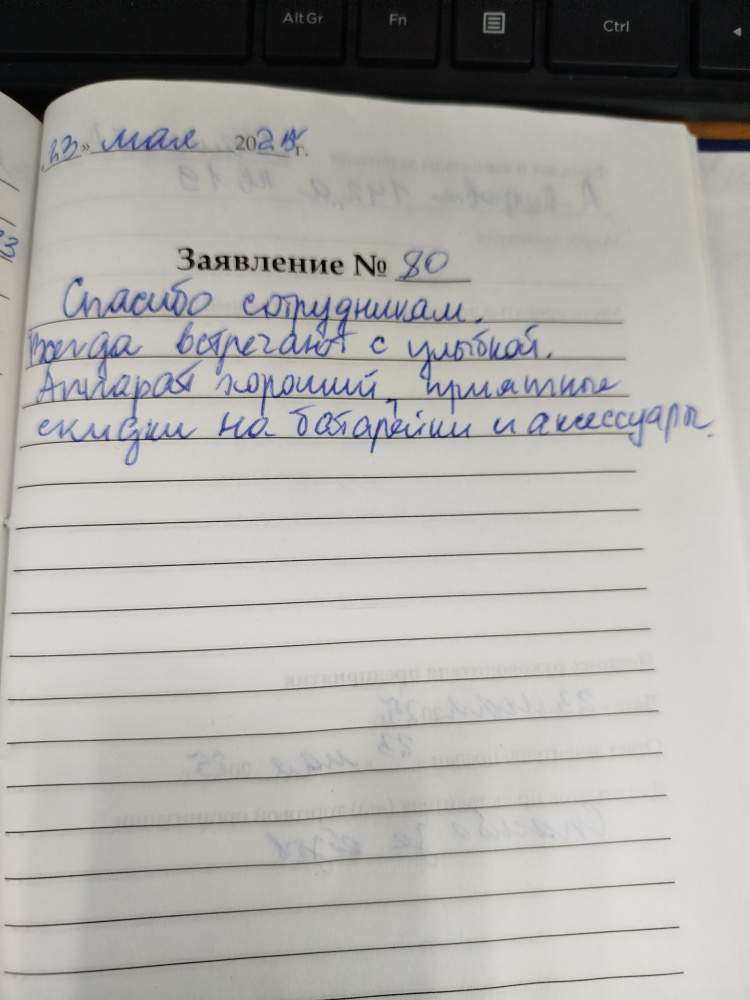 Alt Gr Fn Ctrl
23» мая 202 г.
Заявление № 80
Спасибо сотрудникам.
Всегда встречают с улыбкой.
Аппарат хороший, приятные
скидки на батарейки и аксессуары.